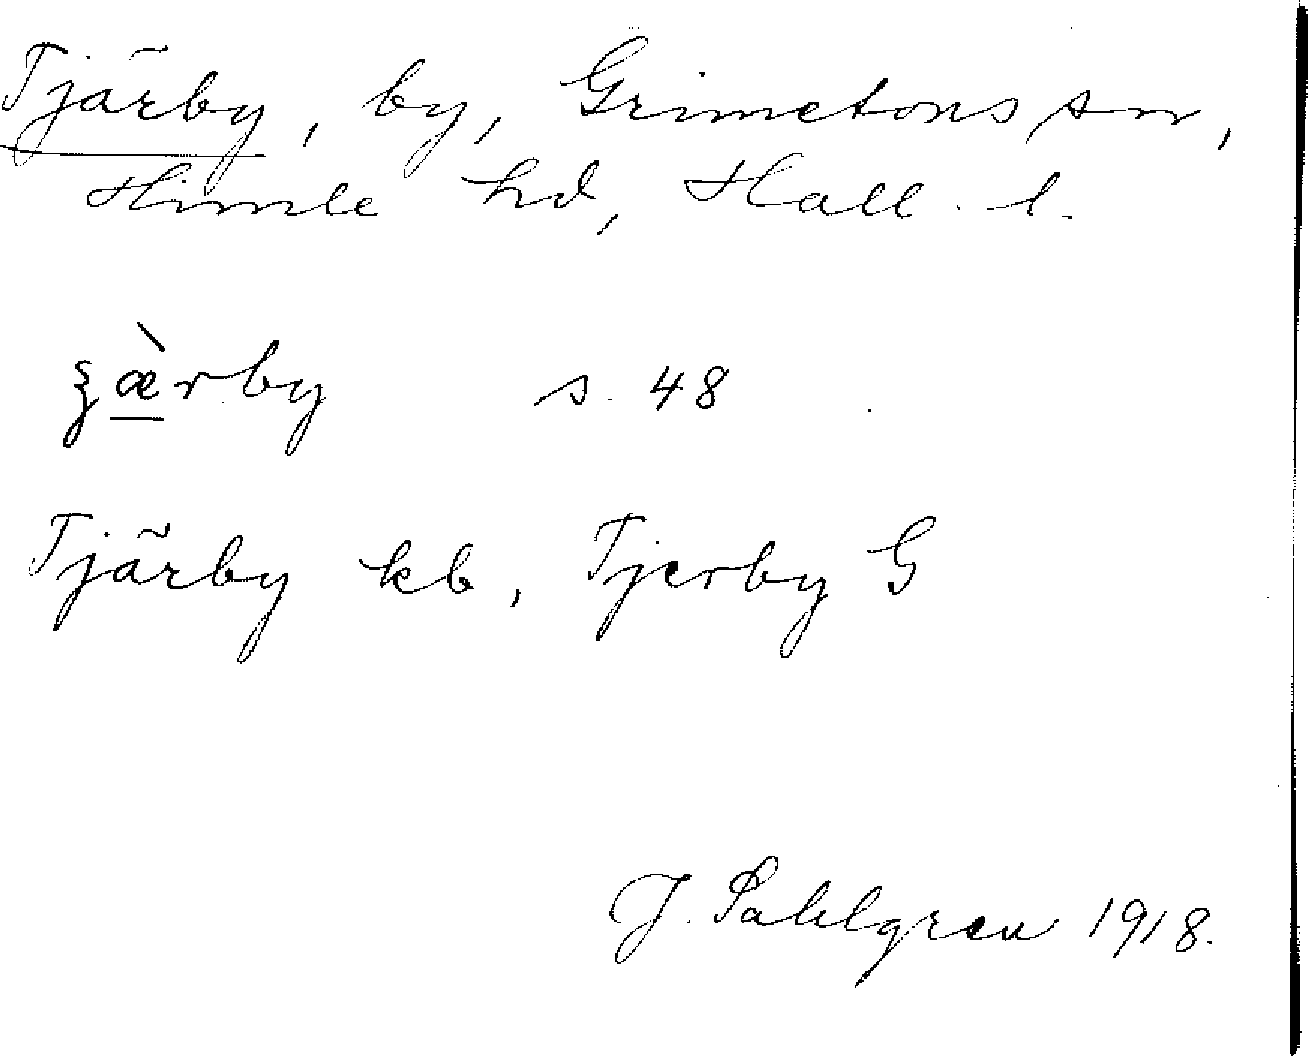 Tjärby, by, Grimetons sn,
Himle hd, Hall. l.
ȥæ̀rby s. 48
Tjärby kb, Tjerby G
J. Sahlgren 1918.